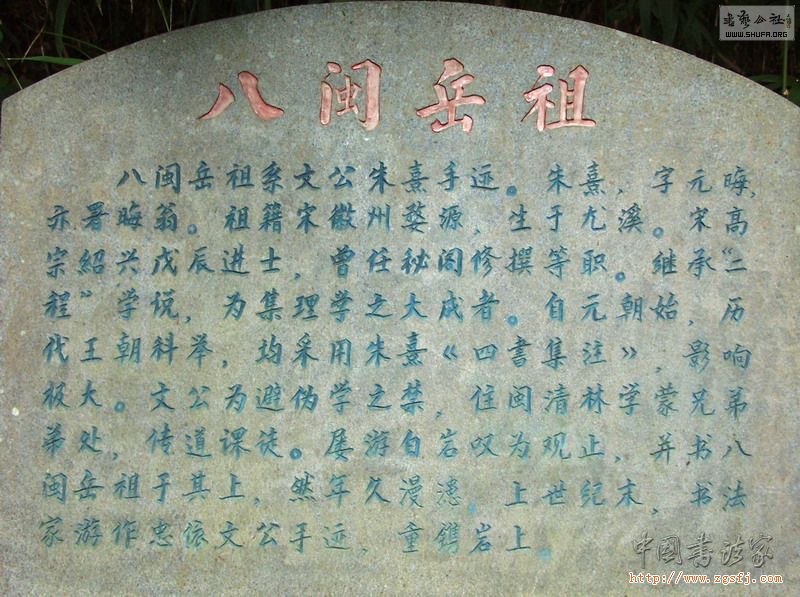 書艺公社
WWW.SHUFA.ORG
八闽岳祖
八闽岳祖系文公朱熹手迹。朱熹，字元晦，
亦署晦翁。祖籍宋徽州婺源，生于尤溪。宋高
宗紹兴戊辰进士，曾任秘阁修撰等职。继承“二
程”学说，为集理学之大成者。自元朝始，历
代王朝科举，均采用朱熹《四書集注》，影响
极大。文公为避伪学之禁，住闽清林学蒙兄弟
弟处，传道课徒。屡游白岩叹为观止，并书八
闽岳祖于其上，然年久漫漶。上世纪末，书法
家游作忠依文公手迹，重镌岩上。
中国书法家
http://www.zgsfj.com/